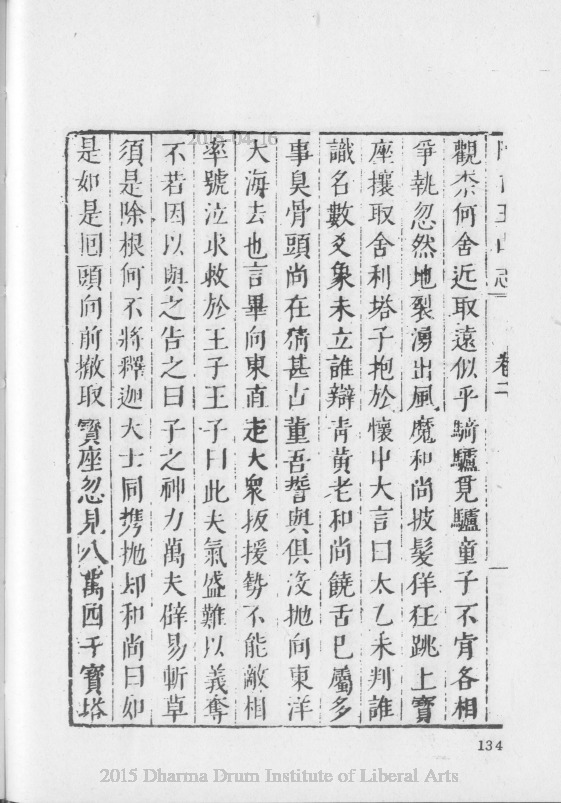 阿育王山志 卷二
觀柰何舍近取遠似乎騎驢覓驢童子不肯各相
爭執忽然地裂湧出風魔和尚披髮佯狂跳上寶
座攘取舍利塔子抱於懷中大言曰太乙未判誰
識名數爻象未立誰辯青黃老和尚饒舌已屬多
事臭骨頭尚在猜甚占董吾誓與俱沒拋向東洋
大海去也言畢向東直走大衆扳援勢不能敵相
率號泣求救於王子王子曰此夫氣盛難以義奪
不若因以與之告之曰子之神力萬夫辟易斬草
須是除根何不將釋迦大士同擕拋却和尚曰如
是如是囘頭向前撤取寶座忽見八萬四千寶塔
134
2015-04-16
2015 Dharma Drum Institute of Liberal Arts